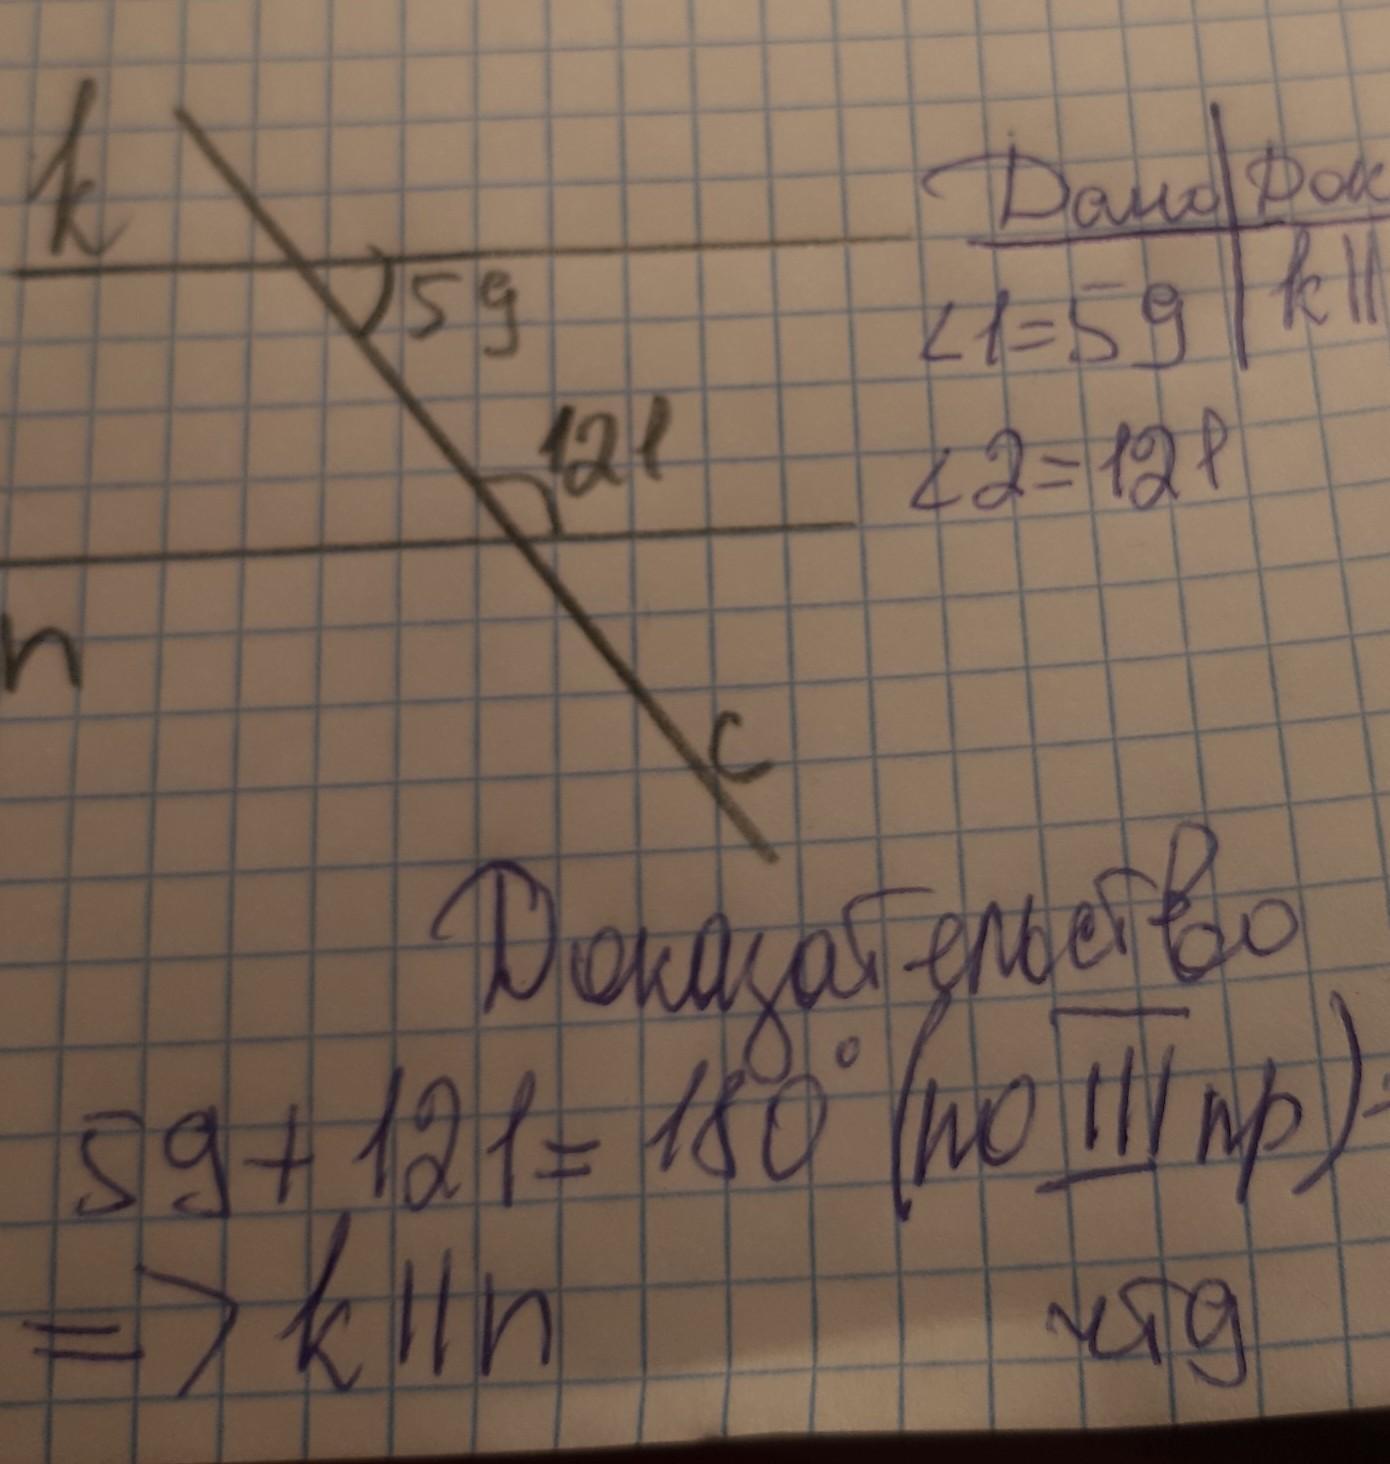 k
59
121
n
c
Дано Док
∠1=59 k||
∠2=121
Доказательство
59+121=180° (по III пр)=
=> k||n чтд